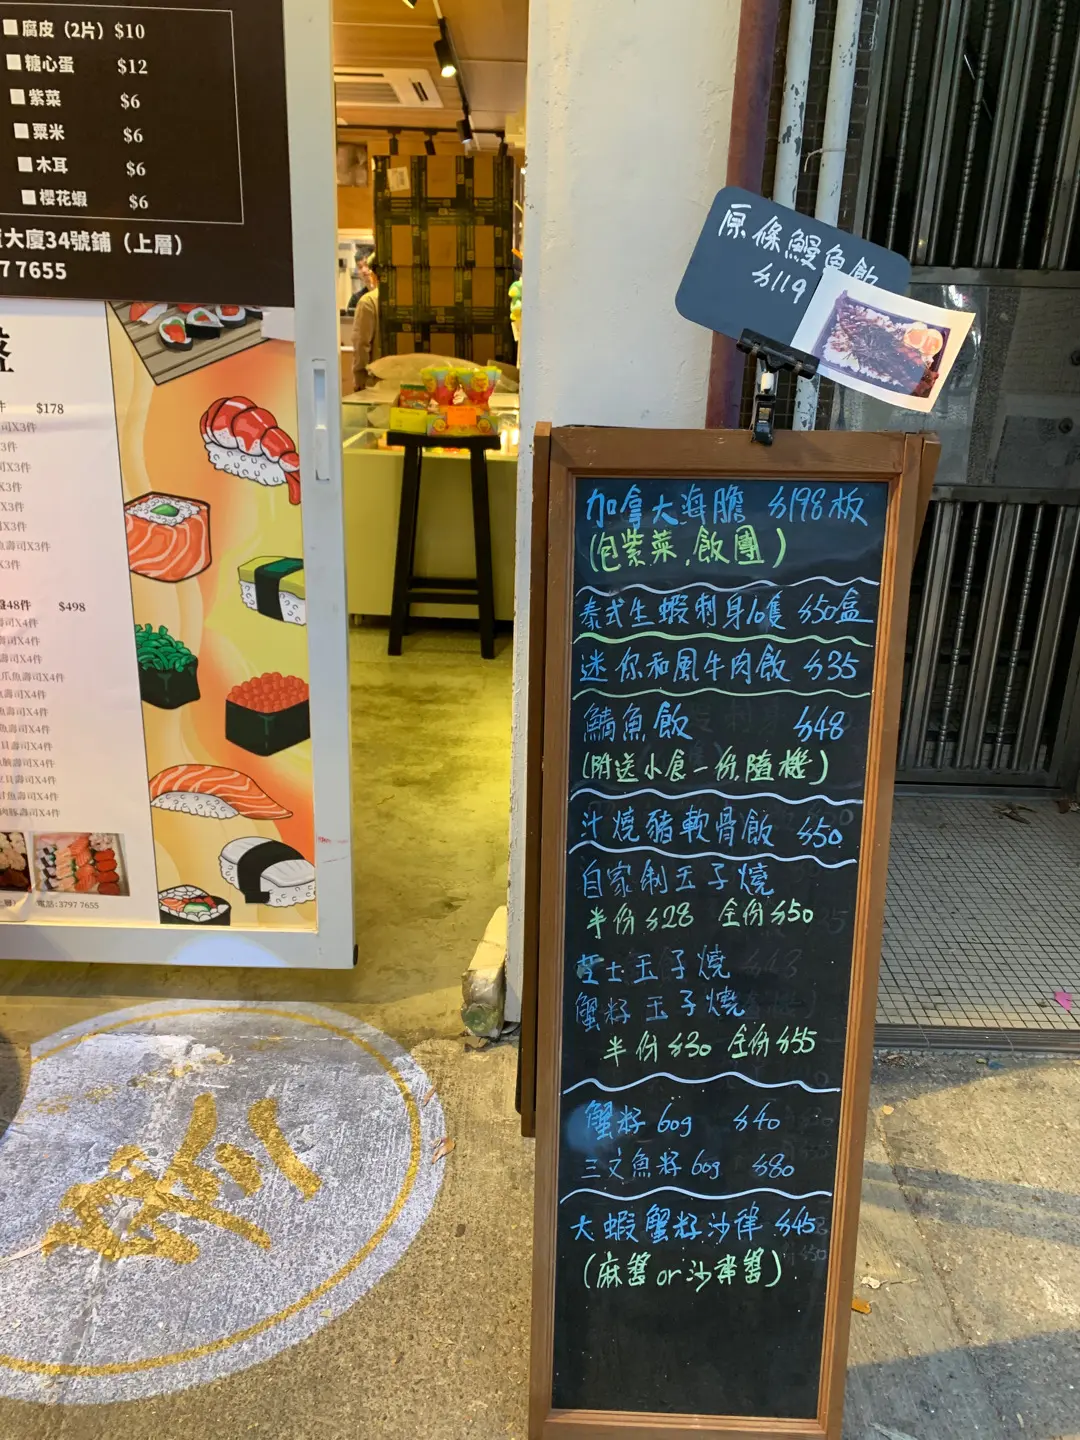 腐皮（2片）$10
糖心蛋 $12
紫菜 $6
粟米 $6
木耳 $6
櫻花蝦 $6
大廈34號鋪（上層）
7 7655
$178
司X3件
3件
司X3件
X3件
X3件
司X3件
魚壽司X3件
X3件
48件 $498
壽司X4件
壽司X4件
壽司X4件
爪魚壽司X4件
魚壽司X4件
壽司X4件
魚壽司X4件
貝壽司X4件
壽司X4件
貝壽司X4件
魚壽司X4件
壽司X4件
電話:3797 7655
原條鰻魚飯
$119
加拿大海膽 $198板
(包紫菜.飯團)
泰式生蝦刺身10隻 $50盒
迷你和風牛肉飯 $35
鯖魚飯 $48
(附送小食一份,隨機)
汁燒豬軟骨飯 $50
自家制玉子燒
半份$28 全份$50
芝士玉子燒
蟹籽玉子燒
半份$30 全份$55
蟹籽60g $40
三文魚籽60g $80
大蝦蟹籽沙律 $45
(麻醬or沙律醬)